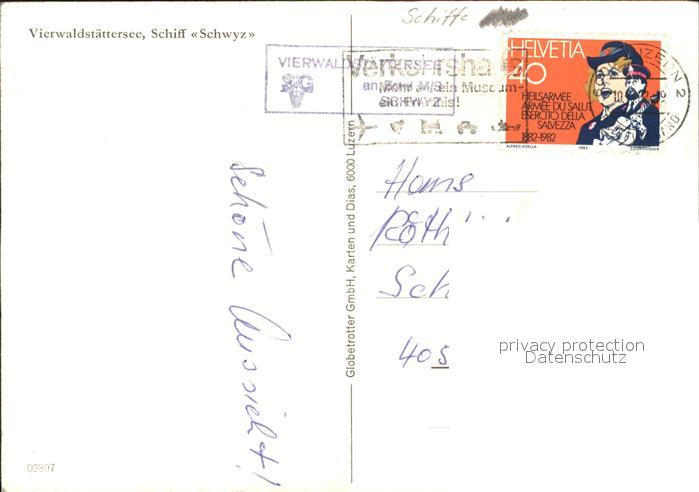 Schiffe
Vierwaldstättersee, Schiff «Schwyz»
VIERWALDSTÄTTERSEE
an Bord M/S
SCHWYZ
SG
Verkehrsha
Mehr als ein Museum-
ein Erlebnis!
HELVETIA
40
HEILSARMEE
ARMÉE DU SALUT
ESERCITO DELLA
SALVEZZA
1882-1982
ALFRED KOELLA
1982
COURVOISIER
LUZERN 2
Schöne Aussicht!
Globetrotter GmbH, Karten und Dias, 6000 Luzern
Hans
Röth
Sch
405
privacy protection
Datenschutz
02897